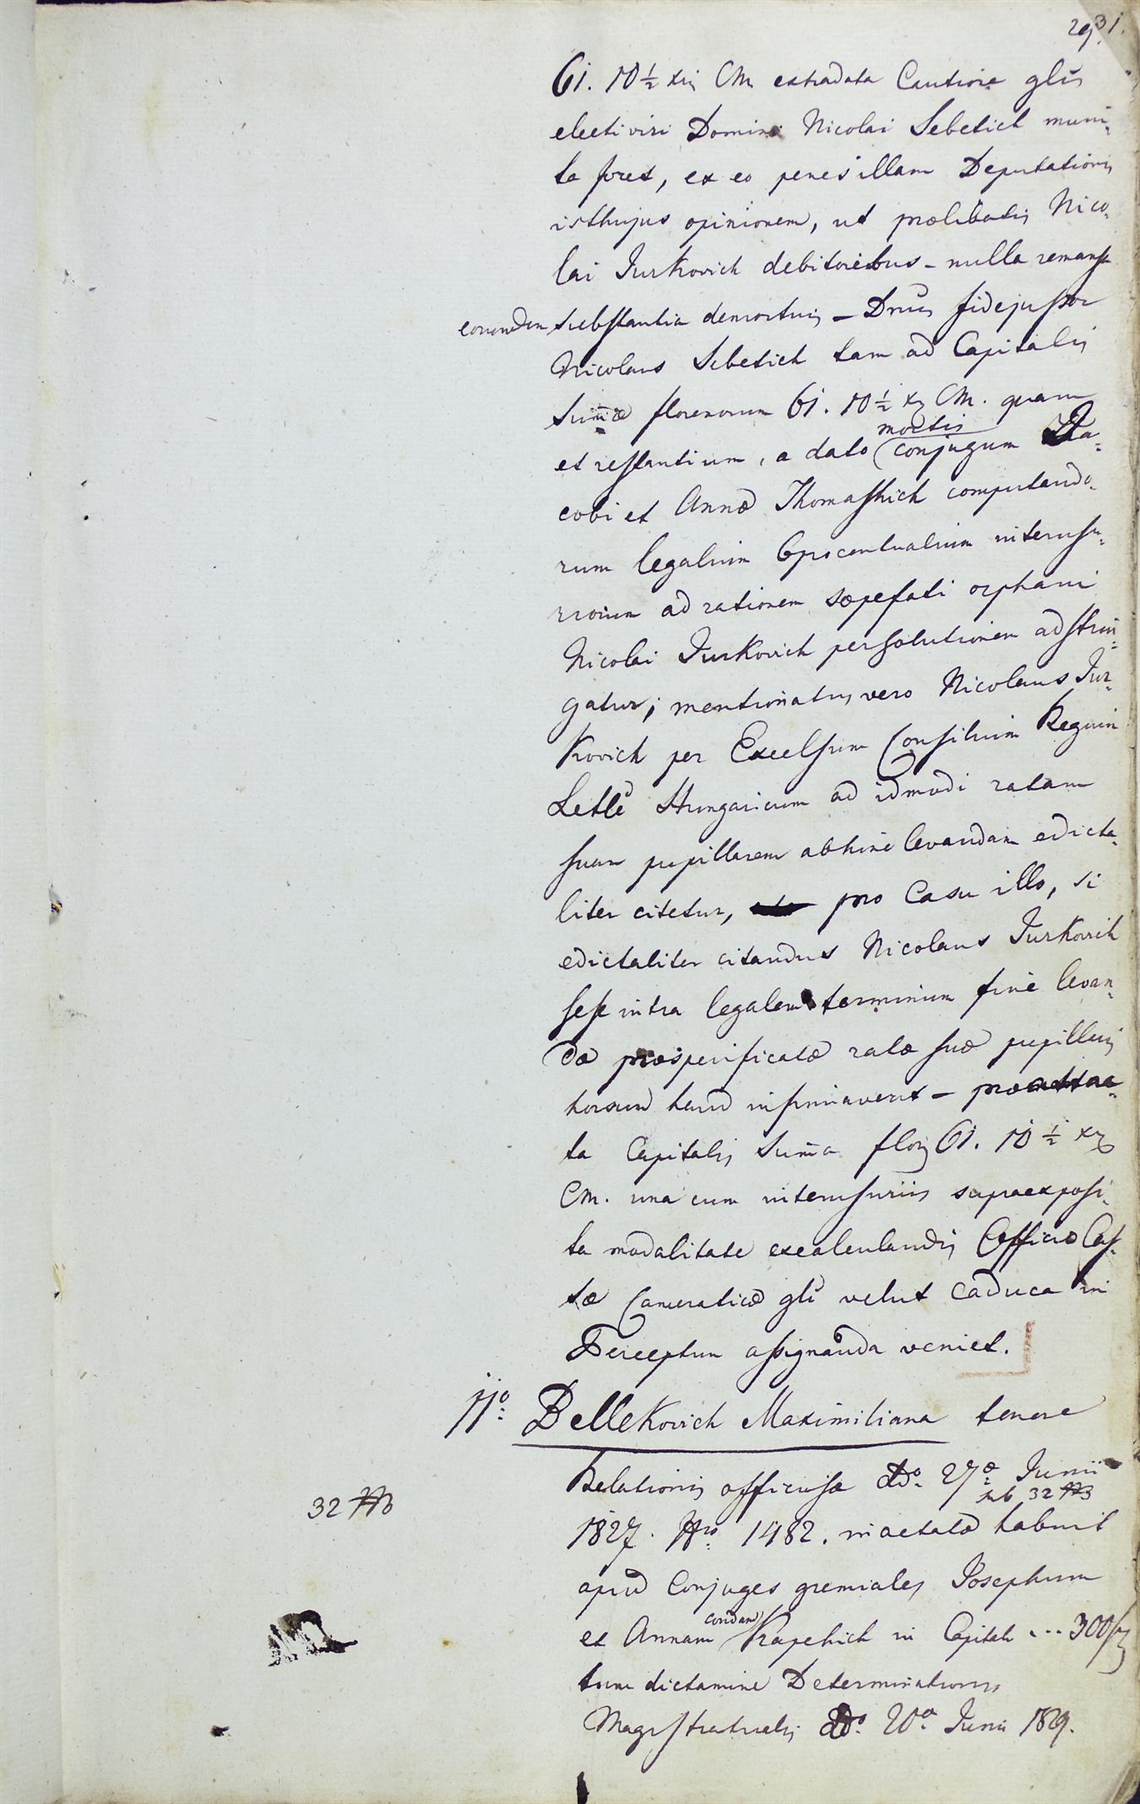 31.
61. 10½ xri CM extradata Cautione gltr
electi viri Domini Nicolai Sebetich muni-
ta foret, ex eo penes illam Deputationis
isthujus opinionem, ut prælibatis Nico-
lai Jurkovich debitoribus – nulla remansa
eorumdem substantia demortuis – Dnus fidejussor
Nicolaus Sebetich tam ad Capitalis
Sum̄æ florenorum 61. 10½ xr CM. quam
et restantium, a dato mortis conjugum Ja-
cobi et Annæ Thomashich computando-
rum legalium 6procentualium interusu-
riorum ad rationem sæpefati orphani
Nicolai Jurkovich persolutionem adstrin-
gatur; mentionatus vero Nicolaus Jur-
kovich per Excelsum Consilium Regium
Lttle Hungaricum ad idmodi ratam
suam pupillarem abhinc levandam edicta-
liter citetur, pro Casu illo, si
edictaliter citandus Nicolaus Jurkovich
sese intra legalem terminum fine levan-
dæ præspecificatæ ratæ suæ pupillaris
horsum haud insinuaverit – proattac-
ta Capitalis Sum̄a flor 61. 10½ xr
CM. una cum interusuriis supraexposi-
ta modalitate excalculandis Officio Cas-
sæ Cameraticæ glr velut caduca in
Perceptum assignanda veniet.
11o: Bellekovich Maximiliana tenore
Relationis officiosæ ddo. 27a Junii
32 sub 32
1827. Nro 1482. inactatæ habuit
apud Conjuges gremiales Josephum
et Annam condam Krapchich in Capitali ... 300 fr
tum dictamine Determinationis
Magistratualis ddo. 20a Junii 1819.